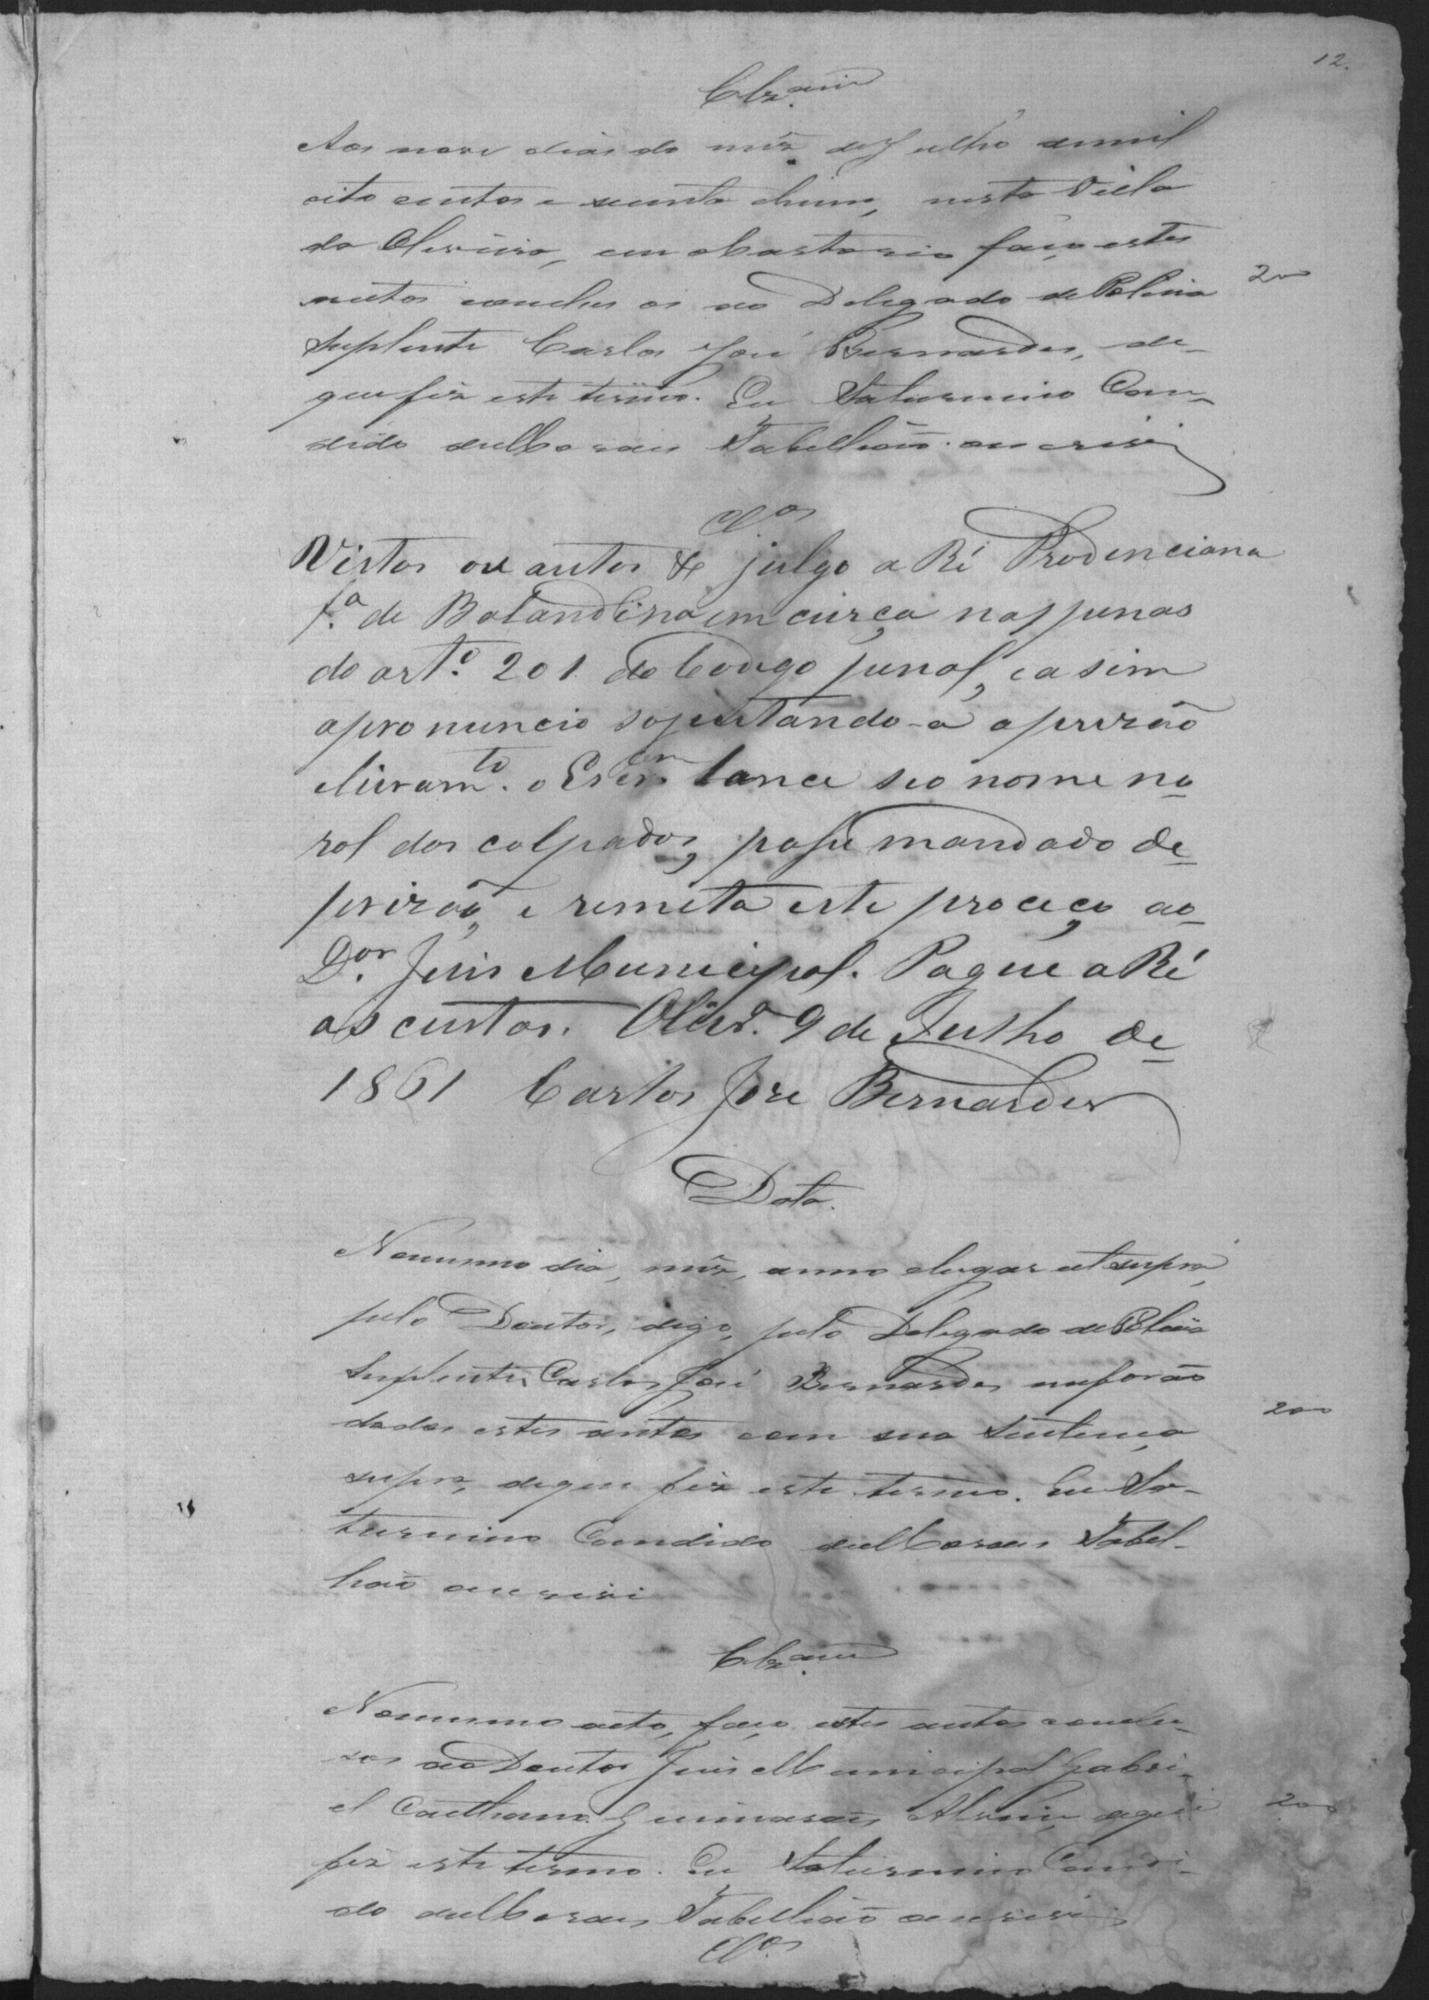 12.
Clz.am
Aos nove dias do mêz de Julho de mil
oito centos e secenta e hum, nesta Villa
da Oliveira, em o Cartorio faço estes
200
autos conclusos ao Delegado de Policia
Suplente Carlos José Bernardes, de
que fiz este termo. Eu Saturnino Can-
dido de Moraes Tabellião que escrevi
Clos
Vistos os autos & julgo a Ré Prodenciana
f.a de Balandina em curça nas penas
do art.o 201 do Codigo penal, e a sim
a pronuncio sogeitando-a a perizão
e livram.to o Escr.am lance seo nome no
rol dos colpados, passe mandado de
perizão, e remeta este proceço ao
D.or Juis Municipal. Pague a Ré
as custas. Oliv.a 9 de Julho de
1861 Carlos Jose Bernardes
Data.
No mesmo dia, mêz, anno e lugar ut supra,
pelo Doutor, digo, pelo Delegado de Policia
Suplente Carlos José Bernardes me forão
200
dados estes autos com sua Sentença
supra, de que fiz este termo. Eu Sa-
turnino Candido de Moraes Tabel-
lião que escrevi
Clz.am
No mesmo acto, faço estes autos conclu-
sos ao Doutor Juis Municipal Gabri-
el Caethano Guimaraes Alvim, de que
200
fiz este termo. Eu Saturnino Candi-
do de Moraes, Tabellião que escrevi
Clos